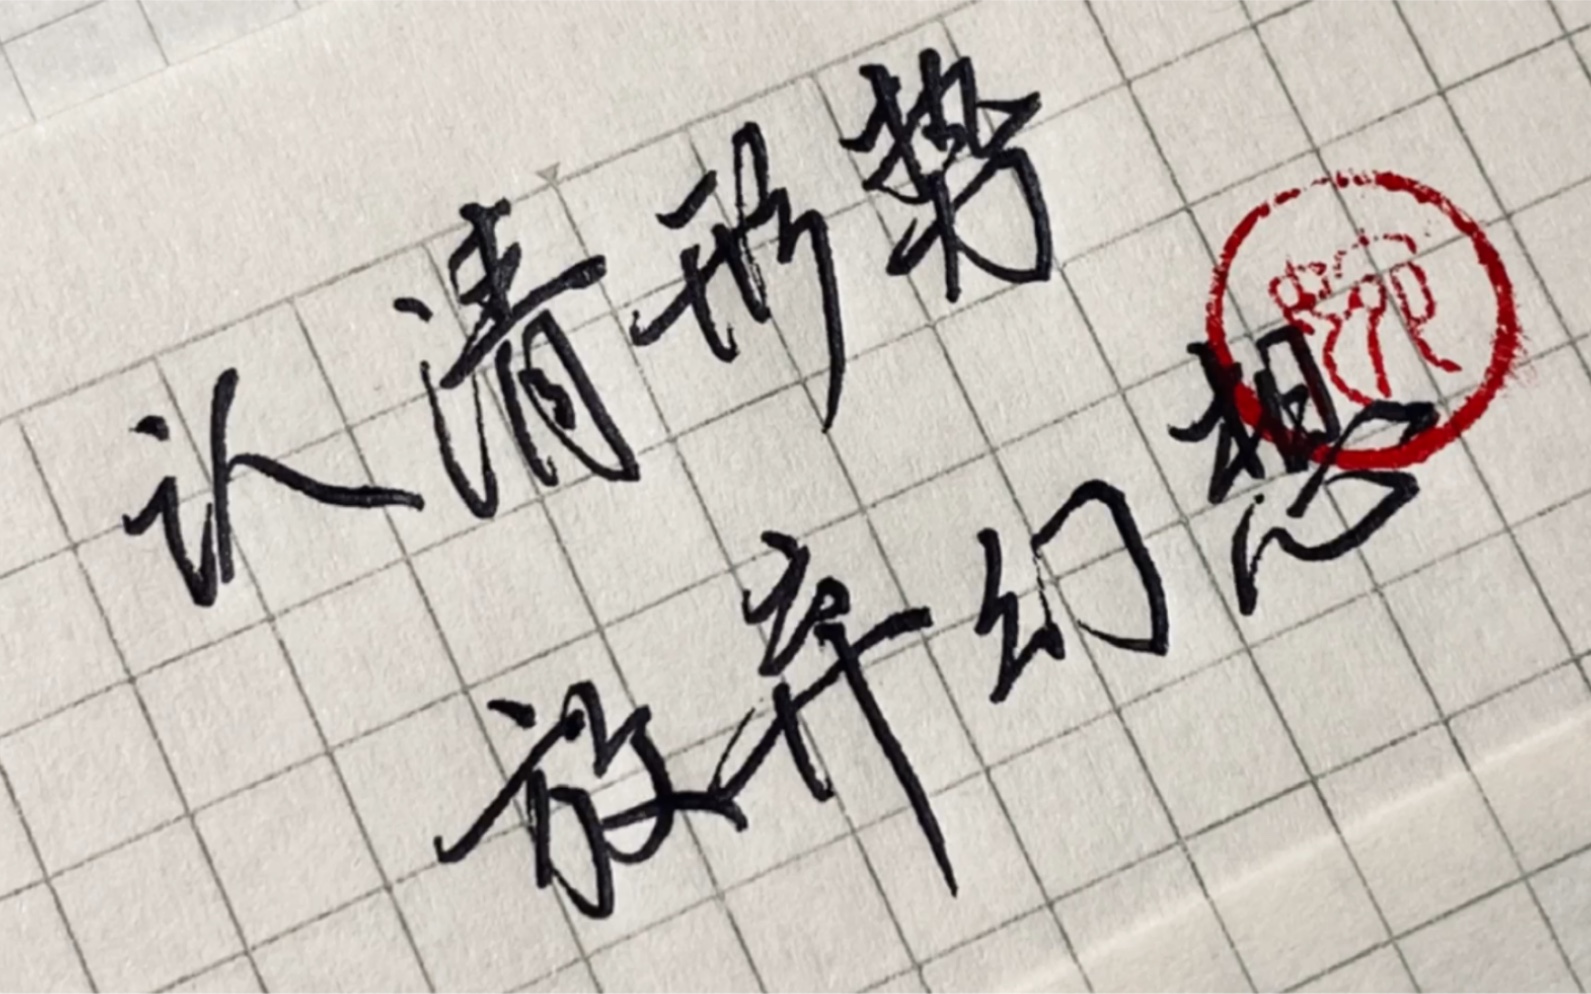 认清形势
放弃幻想